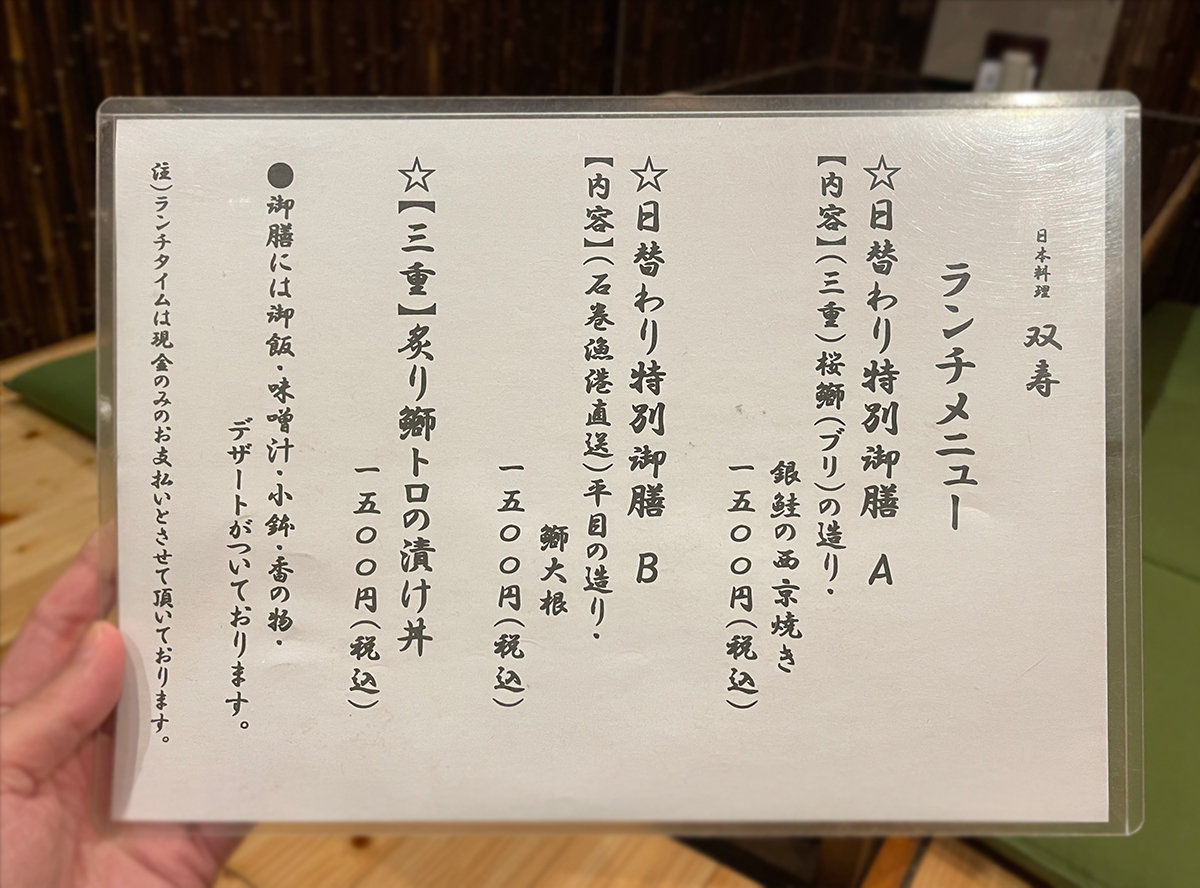 日本料理 双寿
ランチメニュー
☆日替わり特別御膳 A
【内容】(三重)桜鰤(ブリ)の造り・
銀鮭の西京焼き
一五〇〇円(税込)
☆日替わり特別御膳 B
【内容】(石巻漁港直送)平目の造り・
鰤大根
一五〇〇円(税込)
☆【三重】炙り鰤トロの漬け丼
一五〇〇円(税込)
●御膳には御飯・味噌汁・小鉢・香の物・
デザートがついております。
注)ランチタイムは現金のみのお支払いとさせて頂いております。